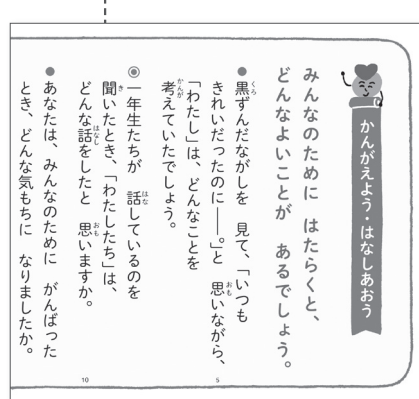 かんがえよう・はなしあおう
みんなのために　はたらくと、
どんなよいことが　あるでしょう。
●黒ずんだながしを　見て、「いつも
きれいだったのに――。」と　思いながら、
「わたし」は、どんなことを
考えていたでしょう。
◉一年生たちが　話しているのを
聞いたとき、「わたしたち」は、
どんな話をしたと　思いますか。
●あなたは、みんなのために　がんばった
とき、どんな気もちに　なりましたか。
5
10